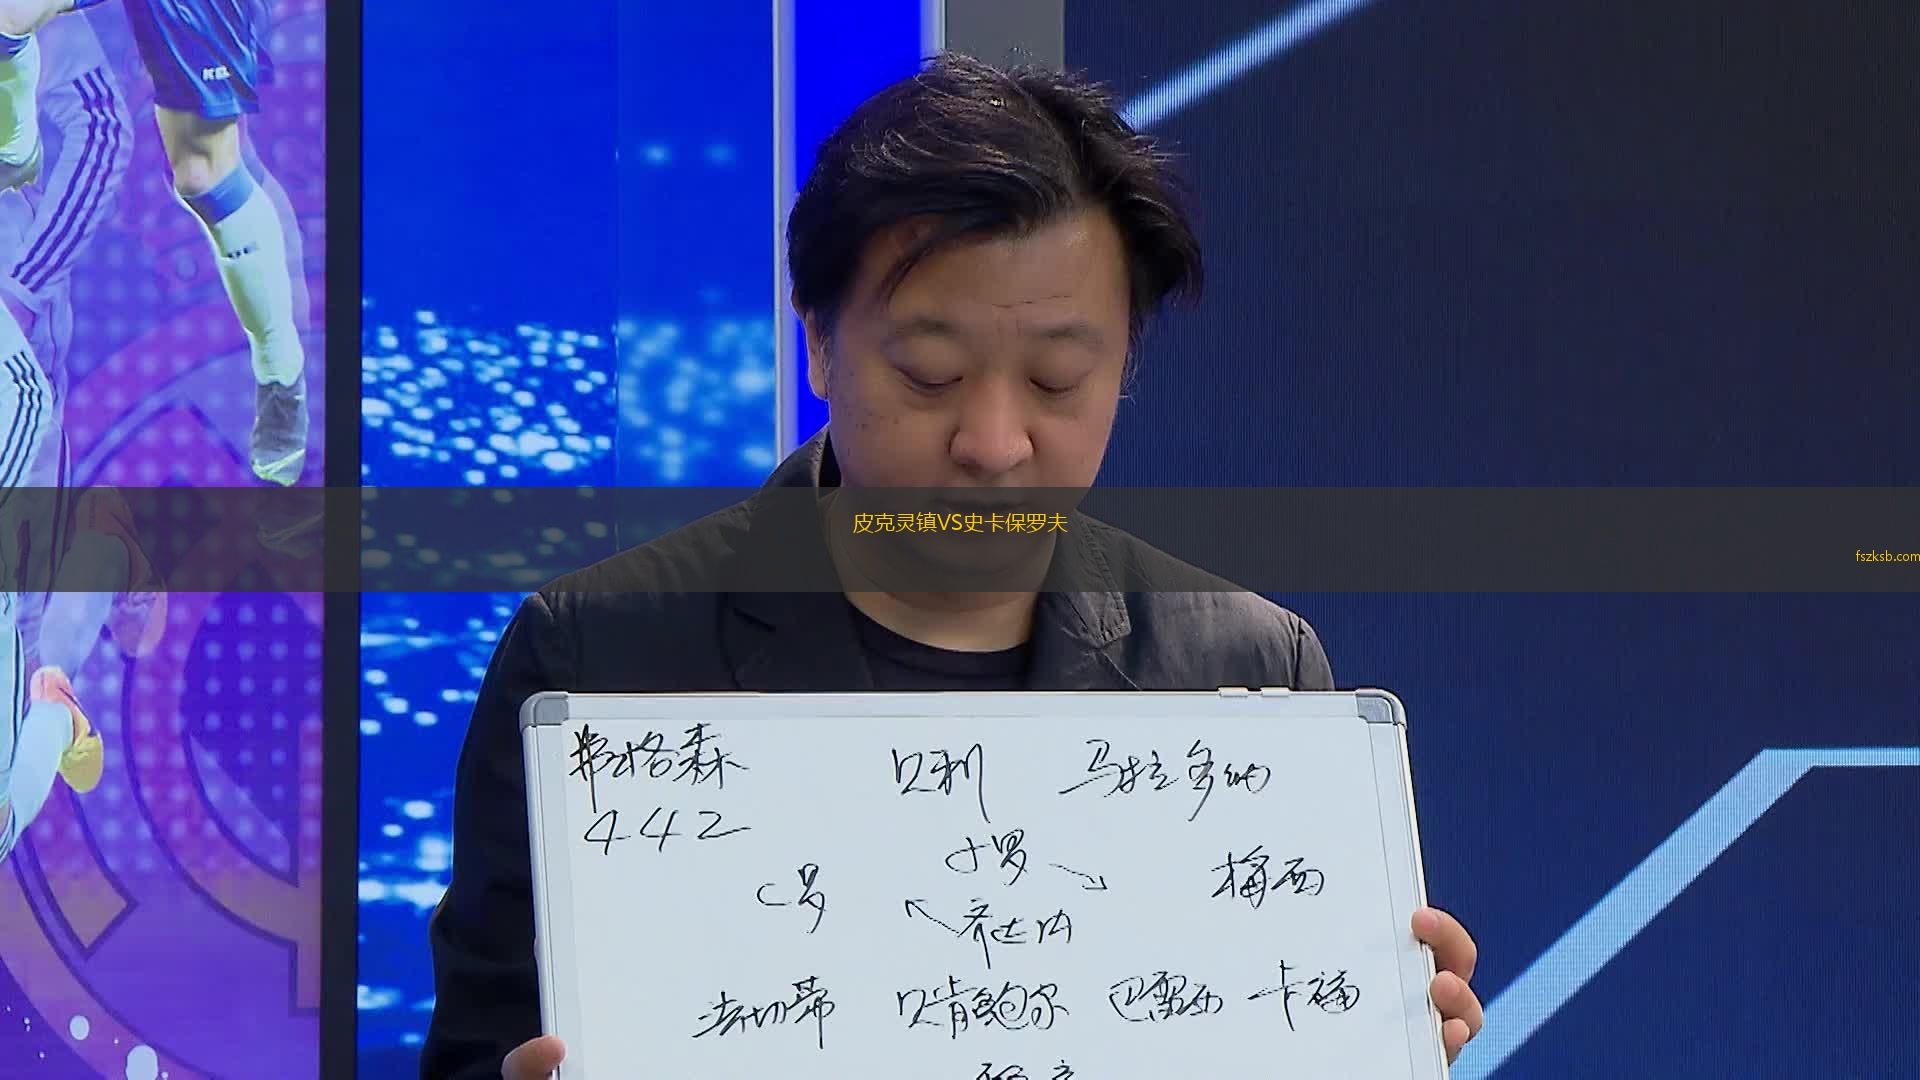 皮克灵镇VS史卡保罗夫
fszksb.com
弗格森 贝利 马拉多纳
442
小罗
C罗 梅西
齐达内
法切蒂 贝肯鲍尔 巴雷西 卡福